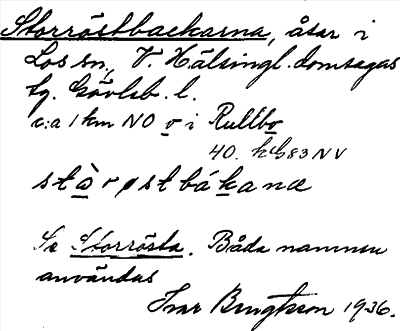 Storröstbackarna, åsar i
Los sn, V. Hälsingl. domsagas
tg. Gävleb. l.
c:a 1 km NO o i Rullbo
40. hG83NV
stòrøstbákanæ
Se Storrösta. Båda namnen
användas
Ivar Bengtsson 1936.